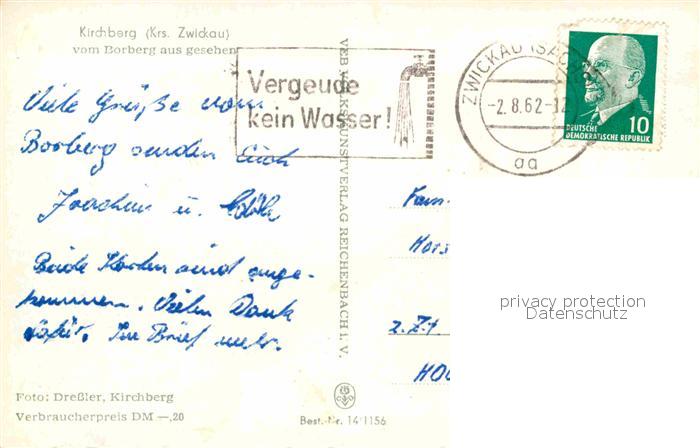 Kirchberg (Krs. Zwickau)
vom Borberg aus gesehen
Vergeude
kein Wasser!
ZWICKAU (SACHS)
-2.8.62-12
aa
10
DEUTSCHE
DEMOKRATISCHE REPUBLIK
Viele Grüße vom
Borberg senden Euch
Joachim u.
Beide Karten sind ange-
kommen. Vielen Dank
dafür. Im Brief mehr.
VEB VOLKSKUNSTVERLAG REICHENBACH i. V.
Fam.
Hors
z. Zt
HO
privacy protection
Datenschutz
Foto: Dreßler, Kirchberg
Verbraucherpreis DM —,20
Best.-Nr. 14/1156